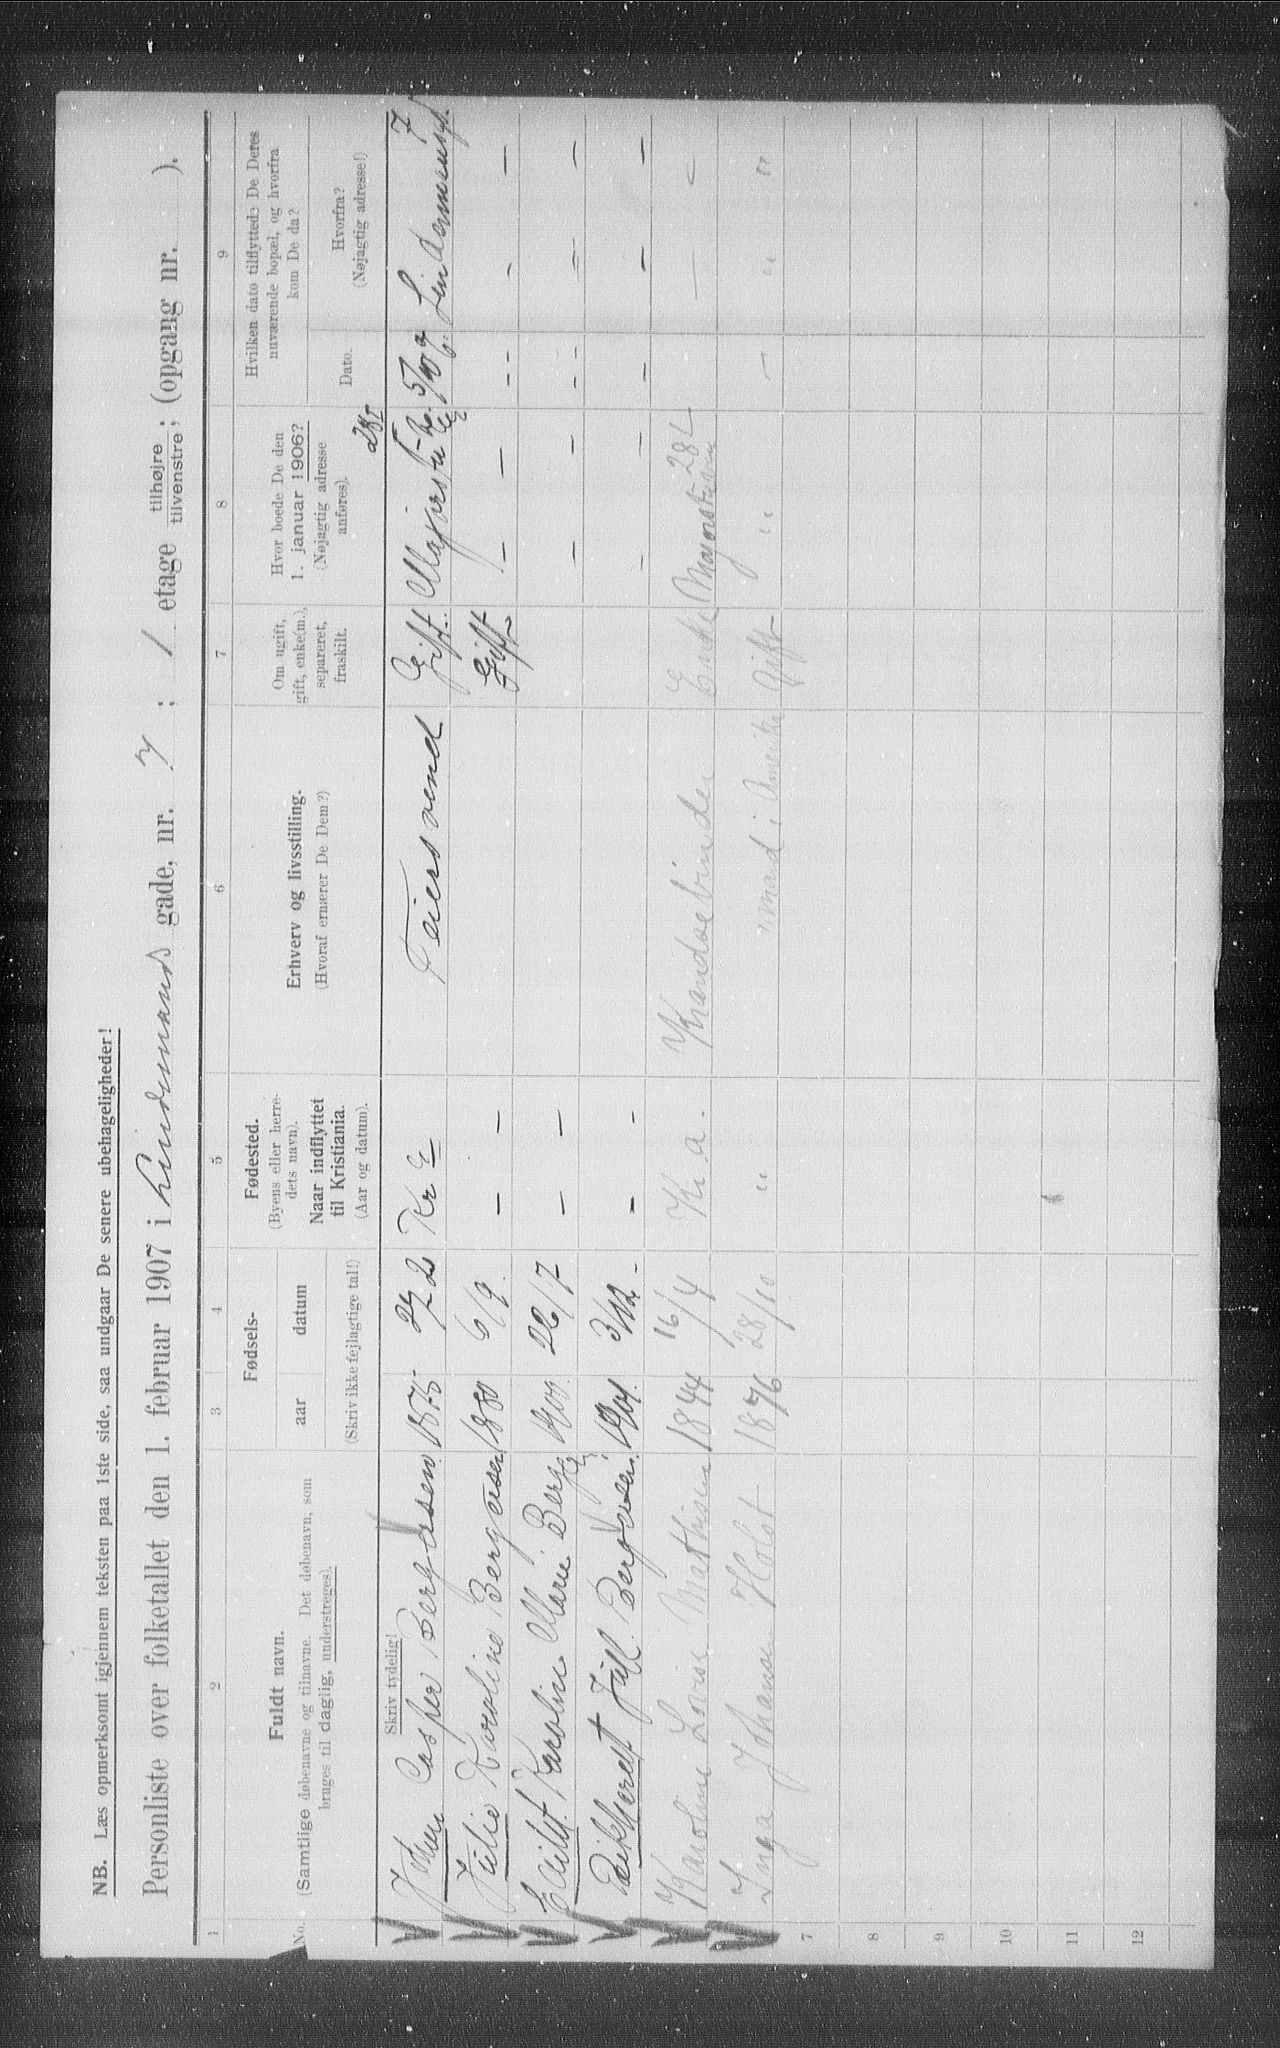 NB. Læs opmerksomt igjennem teksten paa 1ste side, saa undgaar De senere ubehageligheder!
Personliste over folketallet den 1. februar 1907 i Lindemans gade, nr. 7 ; 1 etage tilhøjre / tilvenstre ; (opgang nr. ).
1 2 3 4 5 6 7 8 9
No.
Fuldt navn.
(Samtlige døbenavne og tilnavne. Det døbenavn, som
bruges til daglig, understreges).
Fødsels-
aar datum
(Skriv ikke fejlagtige tal!)
Fødested.
(Byens eller herre-
dets navn).
Naar indflyttet
til Kristiania.
(Aar og datum).
Erhverv og livsstilling.
(Hvoraf ernærer De Dem?)
Om ugift,
gift, enke(m.),
separeret,
fraskilt.
Hvor boede De den
1. januar 1906?
(Nøjagtig adresse
anføres).
Hvilken dato tilflyttede De Deres
nuværende bopæl, og hvorfra
kom De da?
Dato.
Hvorfra?
(Nøjagtig adresse!)
Skriv tydelig!
Johan Casper Bergersen 1875 27/2 Kra Feiersvend Gift. 28I 5/10 7
Julie Karoline Bergersen 1880 6/9 — — Gift — — - - - —
Karoline Marie Berg 26/7 — — — — - - — —
Juhl Bergersen 1904. 3/12 - — - - - - - — —
Karoline Lovise Mathisen 1844 16/4 Kr.a. Krandsebinder Enke 28I
Inga Johanne Holst 1876 28/10 " mand i Amerika Gift " — " "
7
8
9
10
11
12